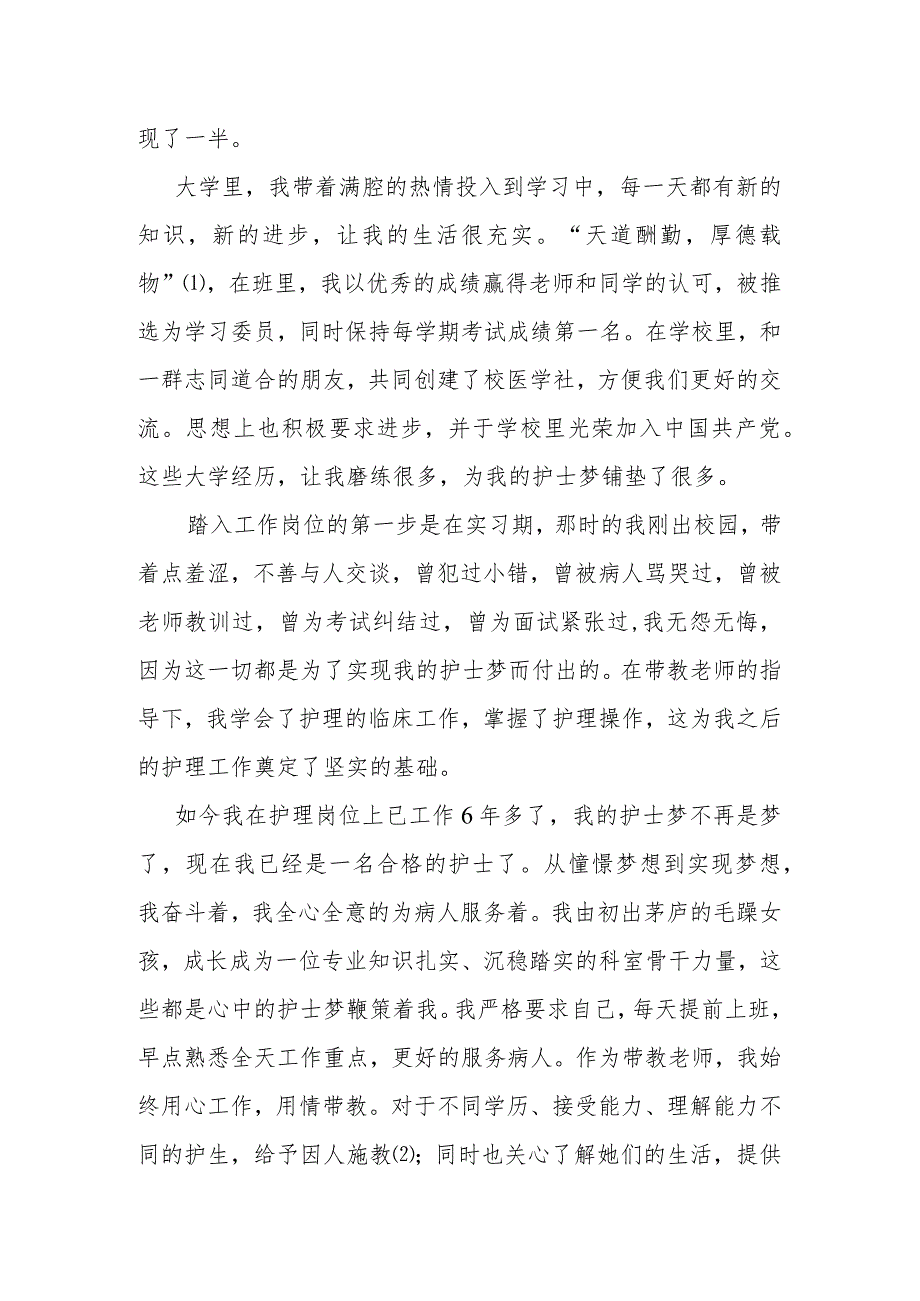 现了一半。
大学里，我带着满腔的热情投入到学习中，每一天都有新的
知识，新的进步，让我的生活很充实。“天道酬勤，厚德载
物”⑴，在班里，我以优秀的成绩赢得老师和同学的认可，被推
选为学习委员，同时保持每学期考试成绩第一名。在学校里，和
一群志同道合的朋友，共同创建了校医学社，方便我们更好的交
流。思想上也积极要求进步，并于学校里光荣加入中国共产党。
这些大学经历，让我磨练很多，为我的护士梦铺垫了很多。
踏入工作岗位的第一步是在实习期，那时的我刚出校园，带
着点羞涩，不善与人交谈，曾犯过小错，曾被病人骂哭过，曾被
老师教训过，曾为考试纠结过，曾为面试紧张过,我无怨无悔，
因为这一切都是为了实现我的护士梦而付出的。在带教老师的指
导下，我学会了护理的临床工作，掌握了护理操作，这为我之后
的护理工作奠定了坚实的基础。
如今我在护理岗位上已工作6年多了，我的护士梦不再是梦
了，现在我已经是一名合格的护士了。从憧憬梦想到实现梦想，
我奋斗着，我全心全意的为病人服务着。我由初出茅庐的毛躁女
孩，成长成为一位专业知识扎实、沉稳踏实的科室骨干力量，这
些都是心中的护士梦鞭策着我。我严格要求自己，每天提前上班，
早点熟悉全天工作重点，更好的服务病人。作为带教老师，我始
终用心工作，用情带教。对于不同学历、接受能力、理解能力不
同的护生，给予因人施教⑵；同时也关心了解她们的生活，提供